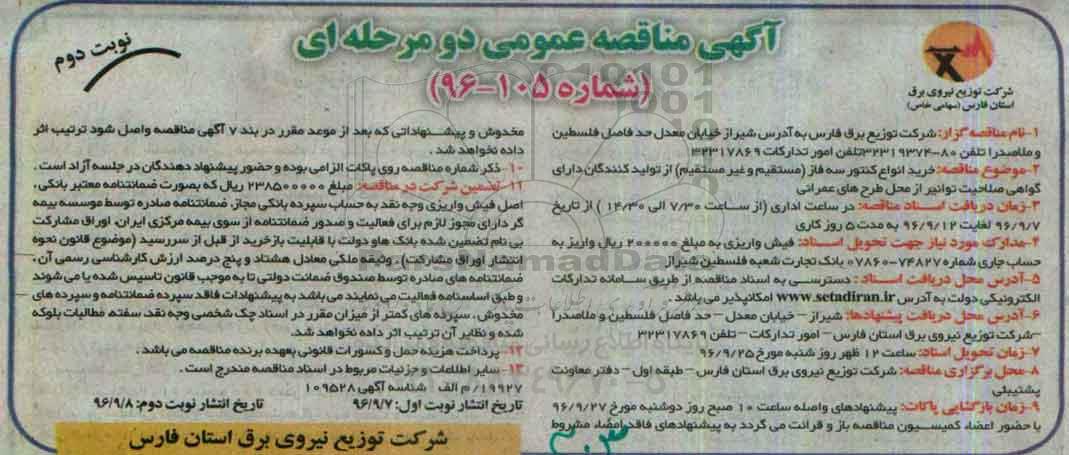 آگهی مناقصه عمومی دو مرحله ای
(شماره ۱۰۵-۹۶)
نوبت دوم
شرکت توزیع نیروی برق
استان فارس (سهامی خاص)
۱-نام مناقصه گزار: شرکت توزیع برق فارس به آدرس شیراز خیابان معدل حد فاصل فلسطین
و ملاصدرا تلفن ۸۰-۳۲۳۱۹۳۷۴تلفن امور تدارکات ۳۲۳۱۷۸۶۹
۲-موضوع مناقصه: خرید انواع کنتور سه فاز (مستقیم و غیر مستقیم) از تولید کنندگان دارای
گواهی صلاحیت توانیر از محل طرح های عمرانی
۳-زمان دریافت اسناد مناقصه: در ساعت اداری (از ساعت ۷/۳۰ الی ۱۴/۳۰ ) از تاریخ
۹۶/۹/۷ لغایت ۹۶/۹/۱۲ به مدت ۵ روز کاری
۴-مدارک مورد نیاز جهت تحویل اسناد: فیش واریزی به مبلغ ۲۰۰۰۰۰ ریال واریز به
حساب جاری شماره ۷۴۸۲۷-۰۷۸۶۰ بانک تجارت شعبه فلسطین شیراز
۵-آدرس محل دریافت اسناد : دسترسی به اسناد مناقصه از طریق سامانه تدارکات
الکترونیکی دولت به آدرس www.setadiran.ir امکانپذیر می باشد .
۶-آدرس محل دریافت پیشنهادها: شیراز - خیابان معدل - حد فاصل فلسطین و ملاصدرا
-شرکت توزیع نیروی برق استان فارس - امور تدارکات - تلفن ۳۲۳۱۷۸۶۹
۷-زمان تحویل اسناد: ساعت ۱۲ ظهر روز شنبه مورخ ۹۶/۹/۲۵
۸-محل برگزاری مناقصه: شرکت توزیع نیروی برق استان فارس - طبقه اول - دفتر معاونت
پشتیبانی
۹-زمان بازگشایی پاکات: پیشنهادهای واصله ساعت ۱۰ صبح روز دوشنبه مورخ ۹۶/۹/۲۷
با حضور اعضاء کمیسیون مناقصه باز و قرائت می گردد به پیشنهادهای فاقد امضاء مشروط
مخدوش و پیشنهاداتی که بعد از موعد مقرر در بند ۷ آگهی مناقصه واصل شود ترتیب اثر
داده نخواهد شد .
۱۰- ذکر شماره مناقصه روی پاکات الزامی بوده و حضور پیشنهاد دهندگان در جلسه آزاد است .
۱۱-تضمین شرکت در مناقصه: مبلغ ۲۳۸۵۰۰۰۰۰ ریال که بصورت ضمانتنامه معتبر بانکی ،
اصل فیش واریزی وجه نقد به حساب سپرده بانکی مجاز، ضمانتنامه صادره توسط موسسه بیمه
گر دارای مجوز لازم برای فعالیت و صدور ضمانتنامه از سوی بیمه مرکزی ایران، اوراق مشارکت
بی نام تضمین شده بانک ها و دولت با قابلیت بازخرید از قبل از سررسید (موضوع قانون نحوه
انتشار اوراق مشارکت)، وثیقه ملکی معادل هشتاد و پنج درصد ارزش کارشناسی رسمی آن ،
ضمانتنامه های صادره توسط صندوق ضمانت دولتی تا به موجب قانون تاسیس شده یا می شوند
و طبق اساسنامه فعالیت می نمایند می باشد به پیشنهادات فاقد سپرده ضمانتنامه و سپرده های
مخدوش ، سپرده های کمتر از میزان مقرر در اسناد چک شخصی وجه نقد، سفته، مطالبات بلوکه
شده و نظایر آن ترتیب اثر داده نخواهد شد.
۱۲- پرداخت هزینه حمل و کسورات قانونی بعهده برنده مناقصه می باشد .
۱۳- سایر اطلاعات و جزئیات مربوط در اسناد مناقصه مندرج است .
۱۹۹۲۷/ م الف شناسه آگهی ۱۰۹۵۲۸
تاریخ انتشار نوبت اول: ۹۶/۹/۷ تاریخ انتشار نوبت دوم: ۹۶/۹/۸
شرکت توزیع نیروی برق استان فارس